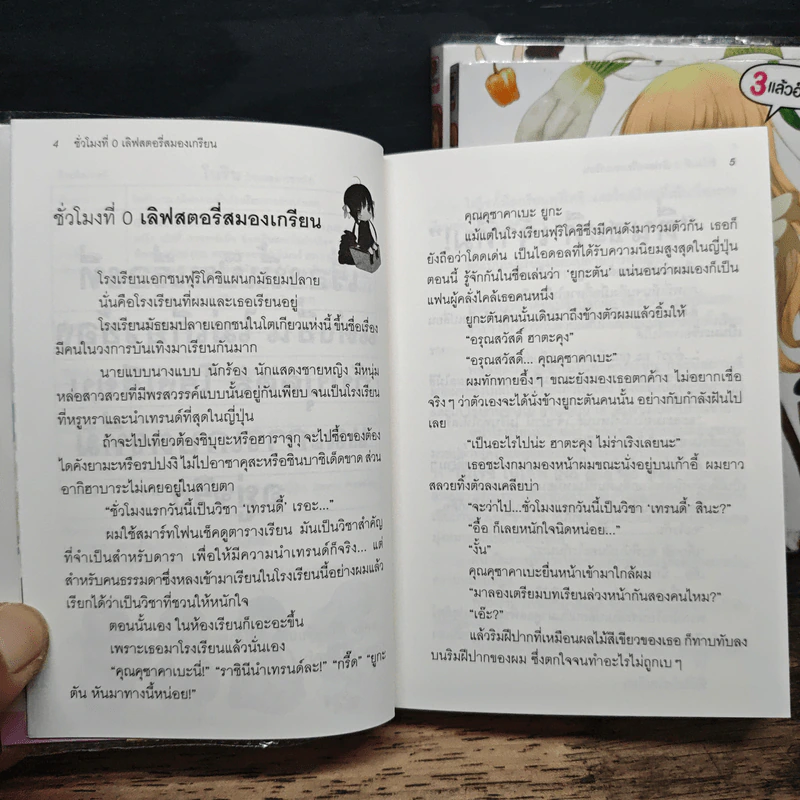 3แล้ว
4 ชั่วโมงที่ 0 เลิฟสตอรี่สมองเกรียน
ชั่วโมงที่ 0 เลิฟสตอรี่สมองเกรียน
โรงเรียนเอกชนฟุริโคชิแผนกมัธยมปลาย
นั่นคือโรงเรียนที่ผมและเธอเรียนอยู่
โรงเรียนมัธยมปลายเอกชนในโตเกียวแห่งนี้ ขึ้นชื่อเรื่อง
มีคนในวงการบันเทิงมาเรียนกันมาก
นายแบบนางแบบ นักร้อง นักแสดงชายหญิง มีหนุ่ม
หล่อสาวสวยที่มีพรสวรรค์แบบนั้นอยู่กันเพียบ จนเป็นโรงเรียน
ที่หรูหราและนำเทรนด์ที่สุดในญี่ปุ่น
ถ้าจะไปเที่ยวต้องชิบุยะหรือฮาราจูกุ จะไปซื้อของต้อง
ไดคังยามะหรือรปปงงิ ไม่ไปอาซาคุสะหรือชินบาชิเด็ดขาด ส่วน
อากิฮาบาระไม่เคยอยู่ในสายตา
“ชั่วโมงแรกวันนี้เป็นวิชา ‘เทรนดี้’ เรอะ...”
ผมใช้สมาร์ทโฟนเช็คดูตารางเรียน มันเป็นวิชาสำคัญ
ที่จำเป็นสำหรับดารา เพื่อให้มีความนำเทรนด์ก็จริง... แต่
สำหรับคนธรรมดาซึ่งหลงเข้ามาเรียนในโรงเรียนนี้อย่างผมแล้ว
เรียกได้ว่าเป็นวิชาที่ชวนให้หนักใจ
ตอนนั้นเอง ในห้องเรียนก็เอะอะขึ้น
เพราะเธอมาโรงเรียนแล้วนั่นเอง
“คุณคุซาคาเบะนี่!” “ราชินีนำเทรนด์ล่ะ!” “กรี๊ด” “ยูกะ
ตัน หันมาทางนี้หน่อย!”
5
คุณคุซาคาเบะ ยูกะ
แม้แต่ในโรงเรียนฟุริโคชิซึ่งมีคนดังมารวมตัวกัน เธอก็
ยังถือว่าโดดเด่น เป็นไอดอลที่ได้รับความนิยมสูงสุดในญี่ปุ่น
ตอนนี้ รู้จักกันในชื่อเล่นว่า ‘ยูกะตัน’ แน่นอนว่าผมเองก็เป็น
แฟนผู้คลั่งไคล้เธอคนหนึ่ง
ยูกะตันคนนั้นเดินมาถึงข้างตัวผมแล้วยิ้มให้
“อรุณสวัสดิ์ ฮาตะคุง”
“อรุณสวัสดิ์... คุณคุซาคาเบะ”
ผมทักทายอึ้งๆ ขณะยังมองเธอตาค้าง ไม่อยากเชื่อ
จริงๆ ว่าตัวเองจะได้นั่งข้างยูกะตันคนนั้น อย่างกับกำลังฝันไป
เลย
“เป็นอะไรไปน่ะ ฮาตะคุง ไม่ร่าเริงเลยนะ”
เธอชะโงกมามองหน้าผมขณะนั่งอยู่บนเก้าอี้ ผมยาว
สลวยทิ้งตัวลงเคลียบ่า
“จะว่าไป...ชั่วโมงแรกวันนี้เป็นวิชา ‘เทรนดี้’ สินะ?”
“อื้อ ก็เลยหนักใจนิดหน่อย...”
“งั้น”
คุณคุซาคาเบะยื่นหน้าเข้ามาใกล้ผม
“มาลองเตรียมบทเรียนล่วงหน้ากันสองคนไหม?”
“เอ๊ะ?”
แล้วริมฝีปากที่เหมือนผลไม้สีเขียวของเธอ ก็ทาบทับลง
บนริมฝีปากของผม ซึ่งตกใจจนทำอะไรไม่ถูกเบๆ